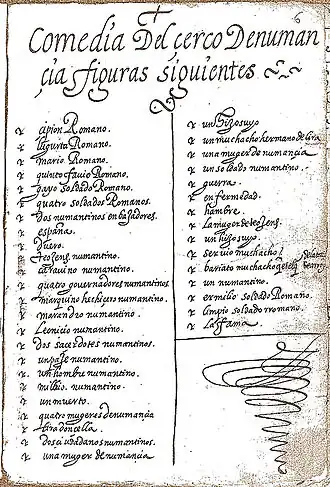 6
Comedia Del çerco Denuman
çia figuras siguientes
çipion Romano.
Iugurta Romano.
mario Romano.
quinto fauio Romano.
gayo soldado Romano.
quatro soldados Romanos.
Dos numantinos enbaxadores.
españa.
Duero.
teogens. numantino.
carauino numantino.
quatro gouernadores numantinos
marquino hechiçero numantino.
morandro numantino.
Leonicio numantino.
Dos saçerdotes numantinos.
un paje numantino
un hombre numantino
miluio. numantino.
un muerto.
quatro mugeres denumançia
lira donçella.
dos ciudadanos numantinos.
una muger de numançia
un hijo suyo
un muchacho hermano de lira
una muger de numançia
un soldado numantino.
guerra.
enfermedad.
hambre.
la muger de teogens.
un hijo suyo.
seruio muchacho
bariato muchacho
un numantino.
ermilio soldado Romano.
limpio soldado rromano.
La fama